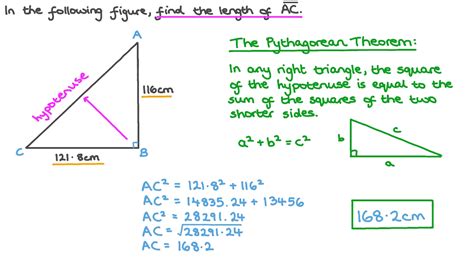 In the following figure, find the length of AC.
A
The Pythagorean Theorem:
hypotenuse
116cm
In any right triangle, the square
of the hypotenuse is equal to the
sum of the squares of the two
shorter sides.
a² + b² = c²
b
c
a
C
B
121.8cm
AC² = 121.8² + 116²
AC² = 14835.24 + 13456
AC² = 28291.24
AC = √28291.24
AC = 168.2
168.2cm